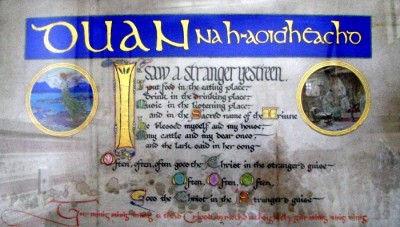 DUAN na h-aoidheachd
I saw a stranger yestreen.
I put food in the eating place:
Drink in the drinking place:
Music in the listening place:
and in the Sacred name of the Triune
He blessed myself and my house:
my cattle and my dear ones:
and the lark said in her song
Often, often, often goes the Christ in the stranger's guise
Often, Often, Often,
Goes the Christ in the Stranger's guise
minig minig minig